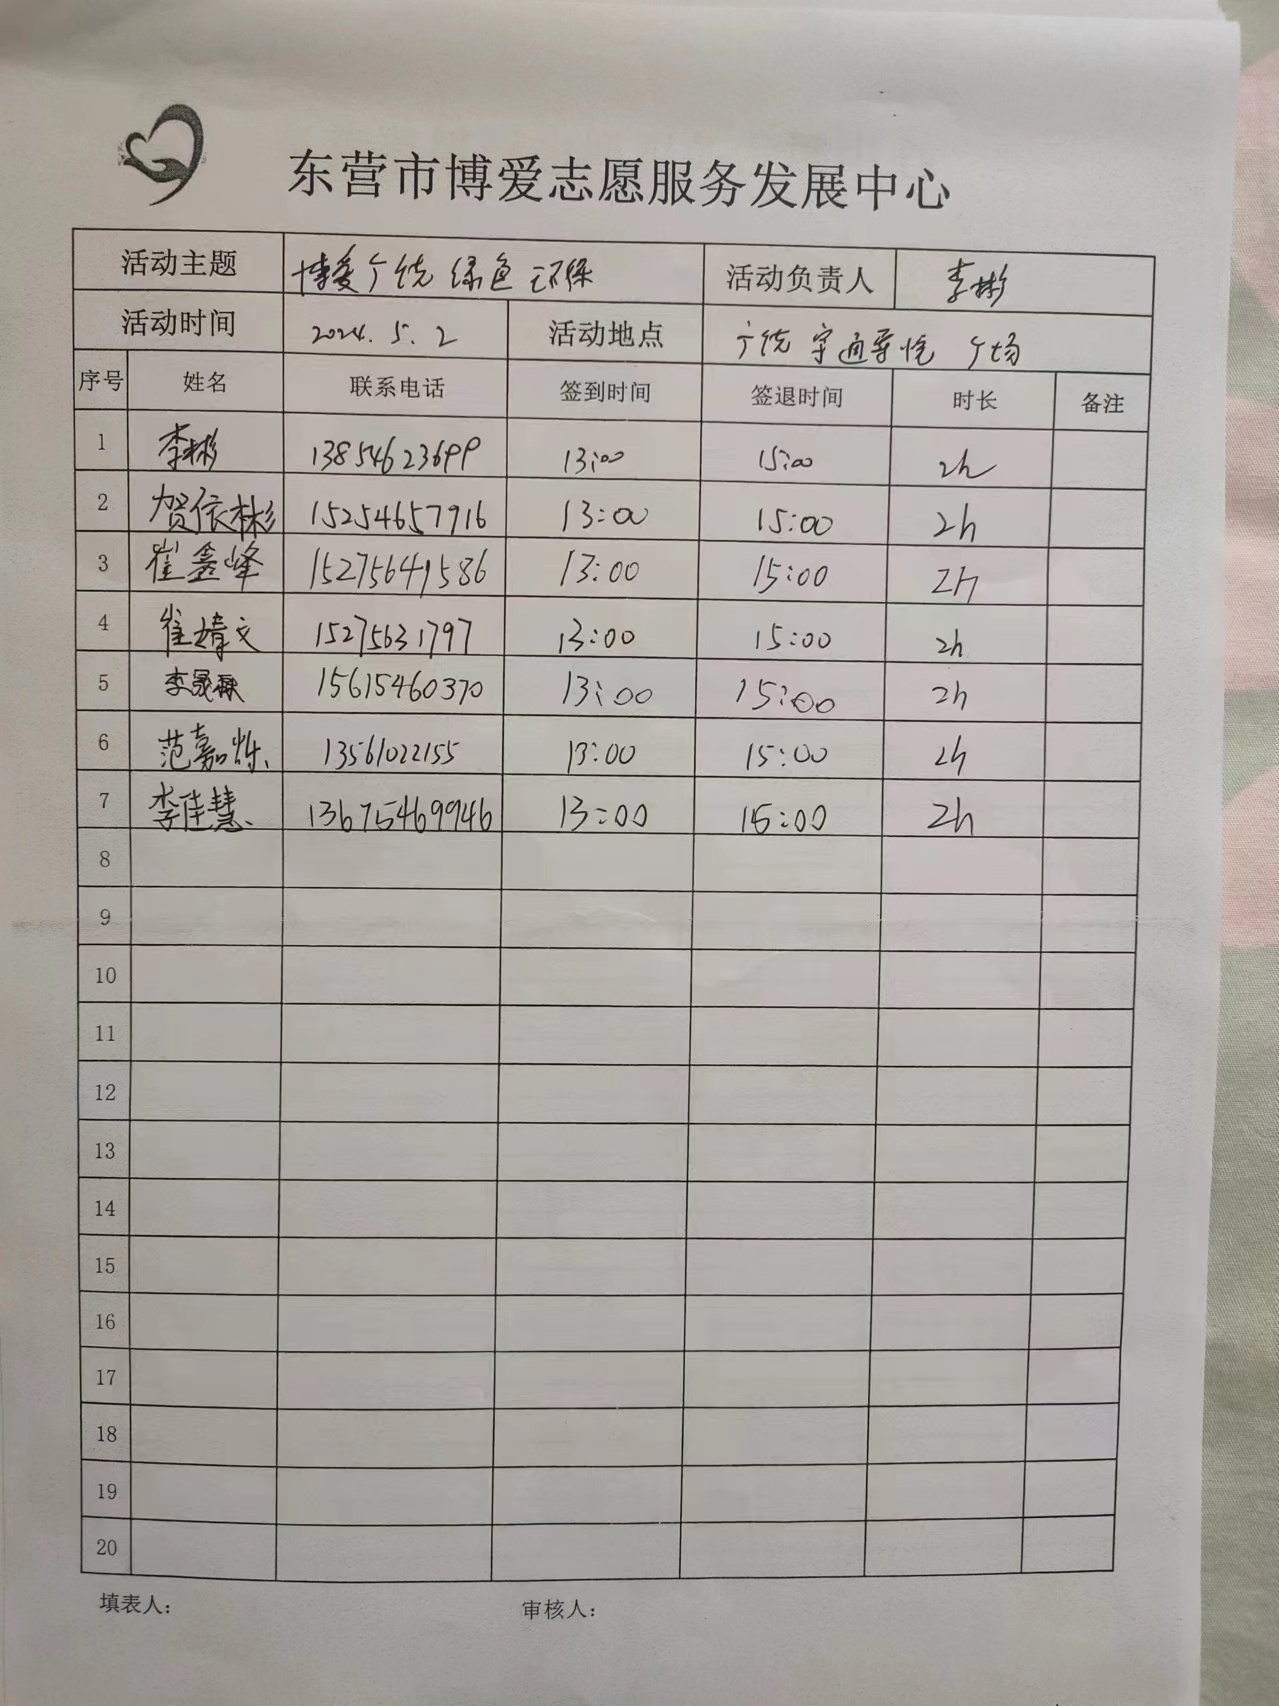 东营市博爱志愿服务发展中心
活动主题 博爱广饶 绿色环保 活动负责人 李彬
活动时间 2024.5.2 活动地点 广饶 宇通 广场
序号 姓名 联系电话 签到时间 签退时间 时长 备注
1 李彬 13854623699 13:00 15:00 2h
2 贺依彬 15254657916 13:00 15:00 2h
3 崔鑫峰 15275641586 13:00 15:00 2H
4 崔婧文 15275631797 13:00 15:00 2h
5 李晟 15615460370 13:00 15:00 2h
6 范嘉烁 13561022155 13:00 15:00 2h
7 李佳慧 13675469946 13:00 15:00 2h
8
9
10
11
12
13
14
15
16
17
18
19
20
填表人： 审核人：